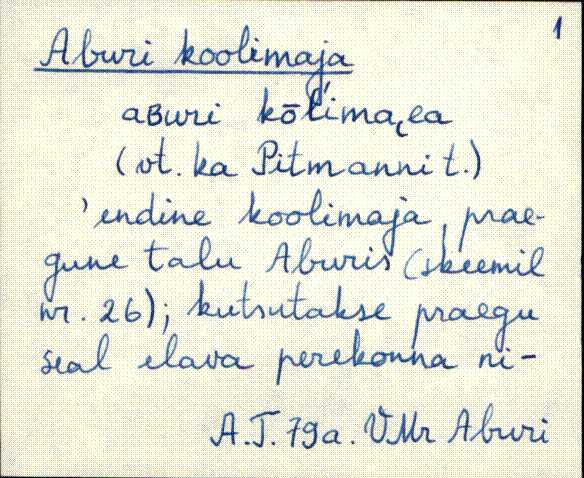 1
Aburi koolimaja
aʙuri kōĺimai̯ea
(vt. ka Pitmanni t.)
'endine koolimaja, prae-
gune talu Aburis (skeemil
nr. 26); kutsutakse praegu
seal elava perekonna ni-
A.J. 79a. VMr Aburi